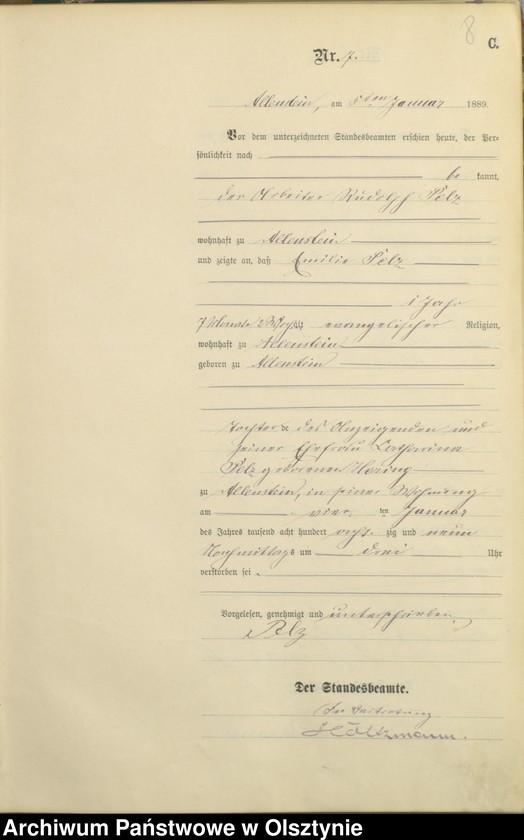 8
C.
Nr. 7.
Allenstein, am 5ten Januar 1889.
Vor dem unterzeichneten Standesbeamten erschien heute, der Per-
sönlichkeit nach
be kannt,
der Arbeiter Rudolph Pelz
wohnhaft zu Allenstein
und zeigte an, daß Emilie Pelz
1 Jahr
7 Monate 2 Woch alt, evangelischer Religion,
wohnhaft zu Allenstein
geboren zu Allenstein
Tochter des Anzeigenden und
seiner Ehefrau Catharina
Pelz geborenen
zu Allenstein, in seiner Wohnung
am vier ten Januar
des Jahres tausend acht hundert acht zig und neun
Nachmittags um drei Uhr
verstorben sei.
Vorgelesen, genehmigt und unterschrieben.
Pelz
Der Standesbeamte.
In Vertretung
Holtzmann.
Archiwum Państwowe w Olsztynie